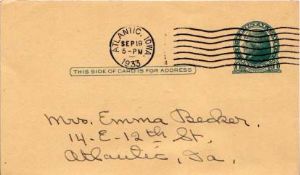 ATLANTIC, IOWA
SEP 19
5-PM
1933
THIS SIDE OF CARD IS FOR ADDRESS
Mrs. Emma Becker.
14-E-12th St.
Atlantic, Ia.